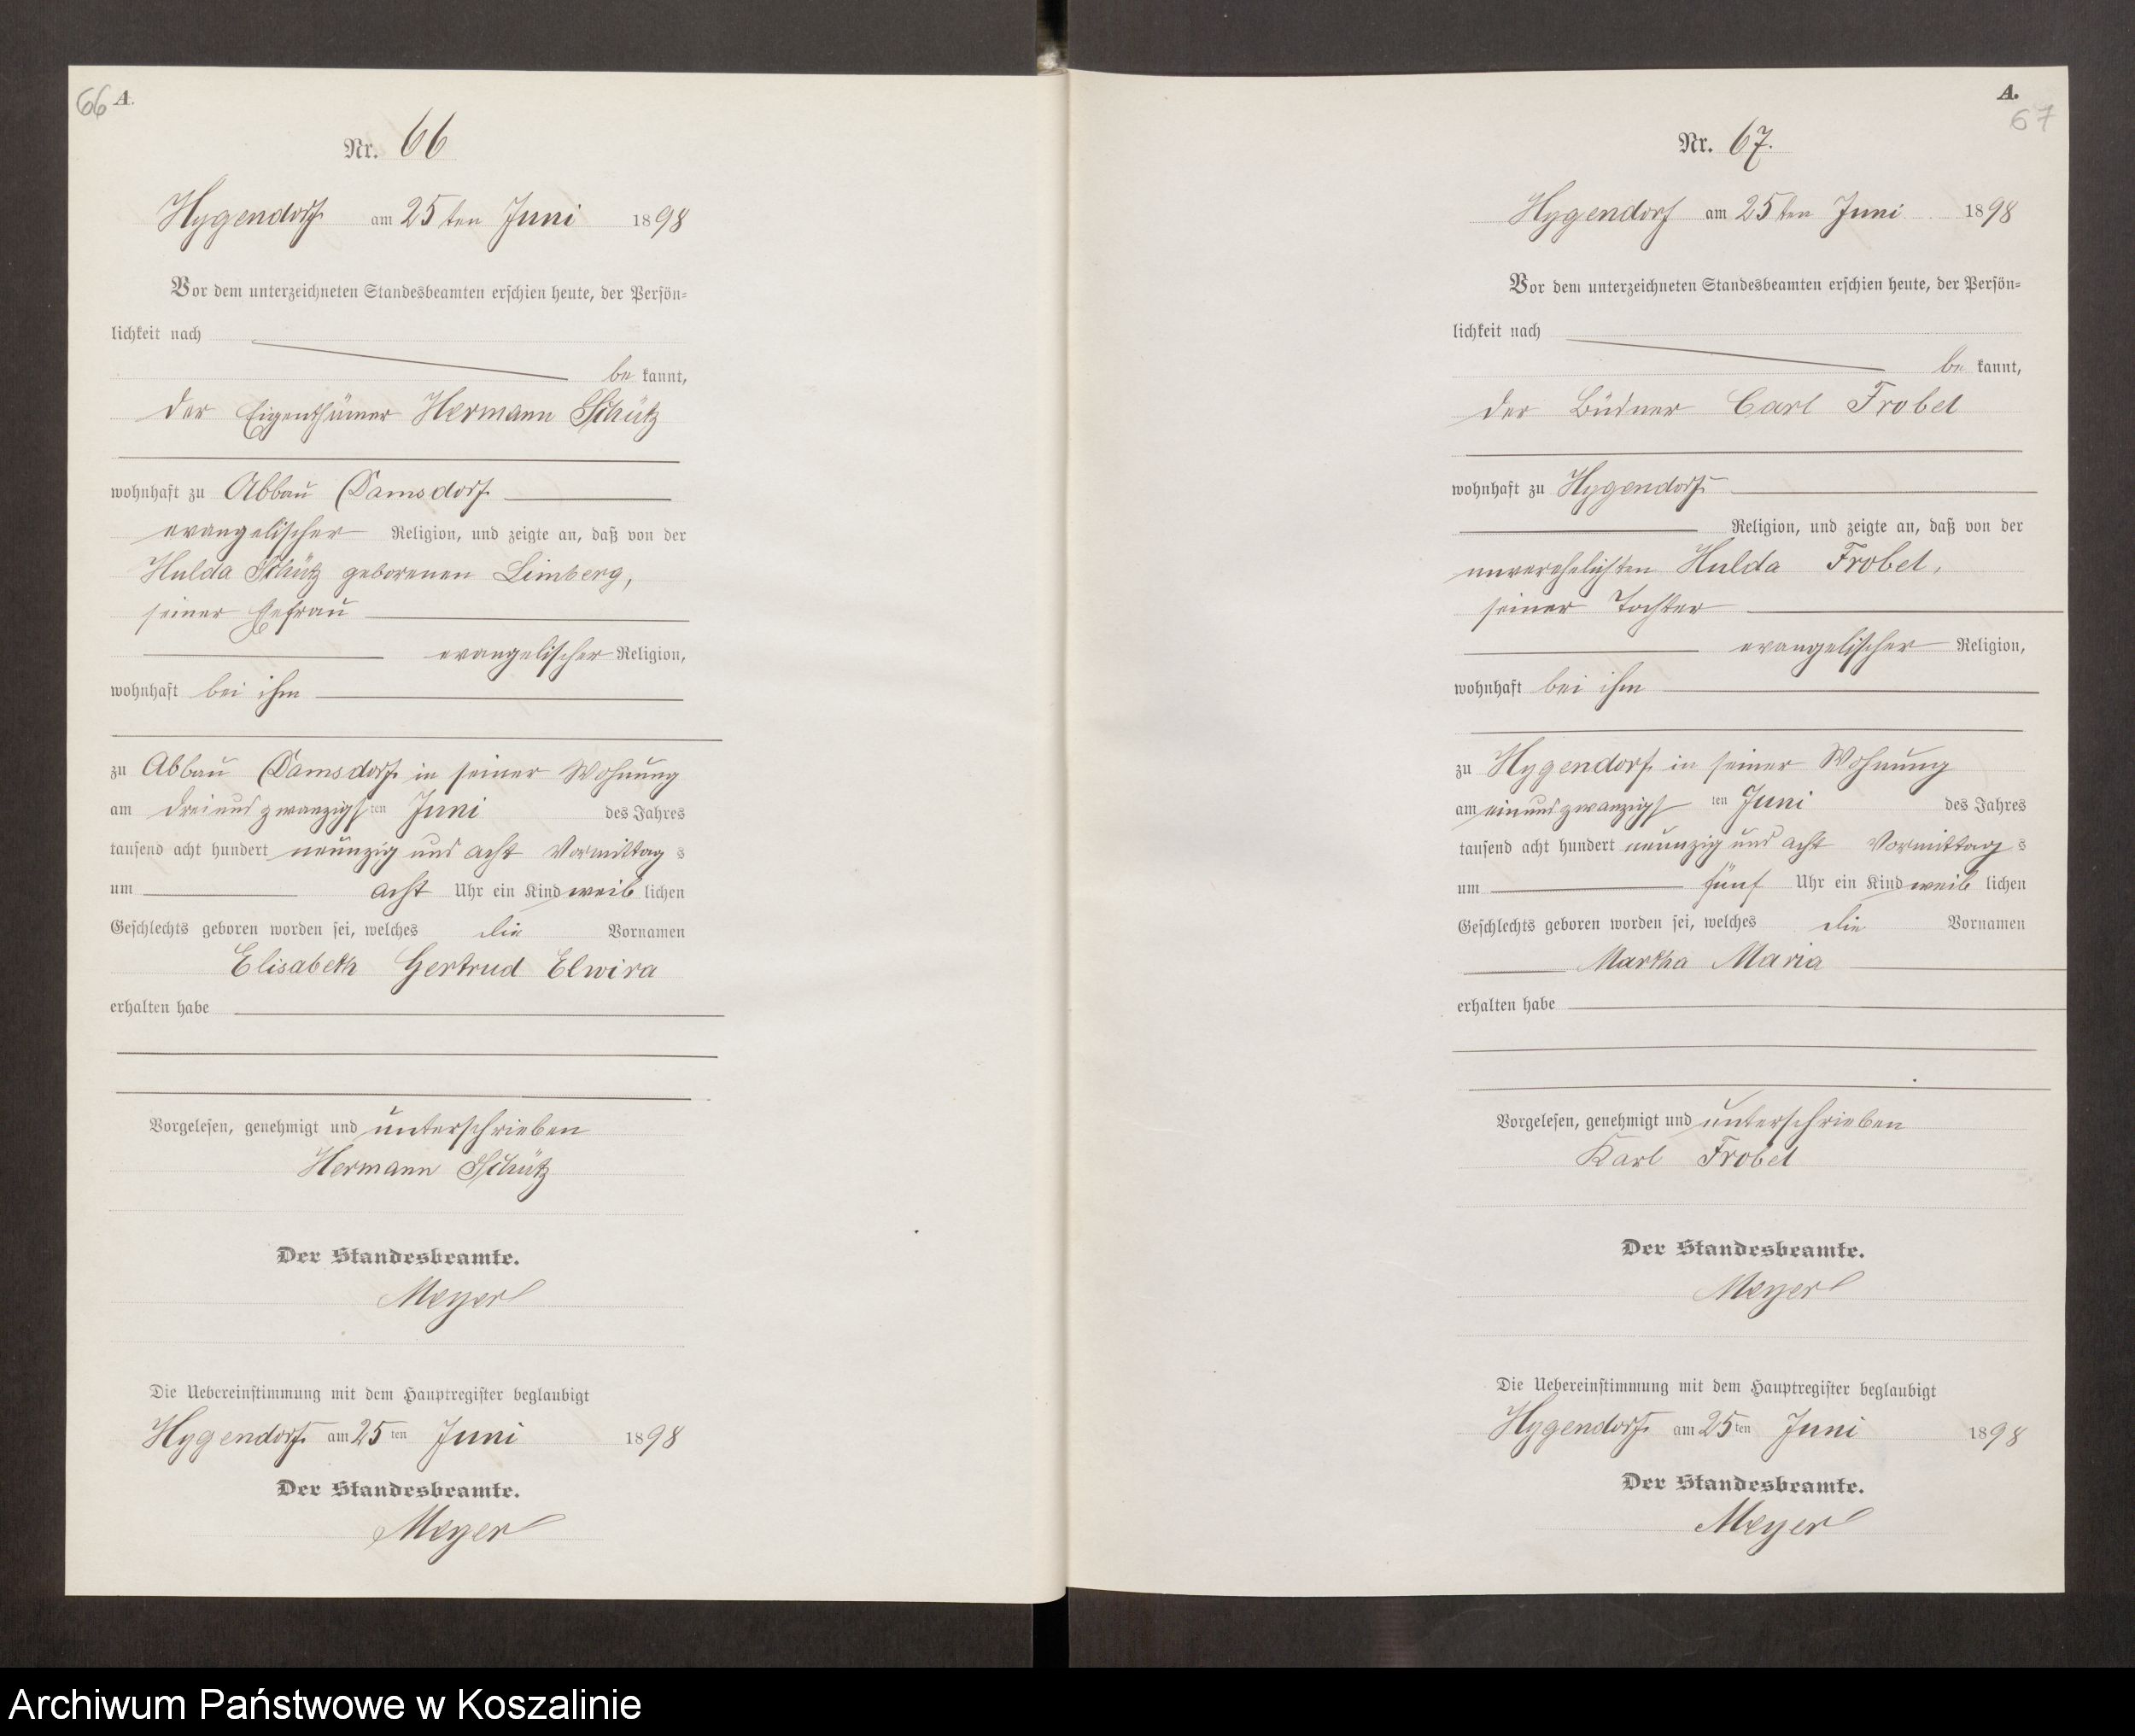 66 A.
Nr. 66
Hygendorf am 25ten Juni 1898
Vor dem unterzeichneten Standesbeamten erschien heute, der Persön=
lichkeit nach
be kannt,
der Eigenthümer Hermann Schütz
wohnhaft zu Abbau Damsdorf
evangelischer Religion, und zeigte an, daß von der
Hulda Schütz geborenen Limberg,
seiner Ehefrau
evangelischer Religion,
wohnhaft bei ihm
zu Abbau Damsdorf in seiner Wohnung
am dreiundzwanzigsten Juni des Jahres
tausend acht hundert neunzig und acht Vormittags
um acht Uhr ein Kind weiblichen
Geschlechts geboren worden sei, welches die Vornamen
Elisabeth Gertrud Elwira
erhalten habe
Vorgelesen, genehmigt und unterschrieben
Hermann Schütz
Der Standesbeamte.
Meyer
Die Uebereinstimmung mit dem Hauptregister beglaubigt
Hygendorf am 25ten Juni 1898
Der Standesbeamte.
Meyer
A.
67
Nr. 67.
Hygendorf am 25ten Juni 1898
Vor dem unterzeichneten Standesbeamten erschien heute, der Persön=
lichkeit nach
be kannt,
der Büdner Carl Frobel
wohnhaft zu Hygendorf
Religion, und zeigte an, daß von der
unverehelichten Hulda Frobel,
seiner Tochter
evangelischer Religion,
wohnhaft bei ihm
zu Hygendorf in seiner Wohnung
am einundzwanzigsten Juni des Jahres
tausend acht hundert neunzig und acht Vormittags
um fünf Uhr ein Kind weiblichen
Geschlechts geboren worden sei, welches die Vornamen
Martha Maria
erhalten habe
Vorgelesen, genehmigt und unterschrieben
Karl Frobel
Der Standesbeamte.
Meyer
Die Uebereinstimmung mit dem Hauptregister beglaubigt
Hygendorf am 25ten Juni 1898
Der Standesbeamte.
Meyer
Archiwum Państwowe w Koszalinie